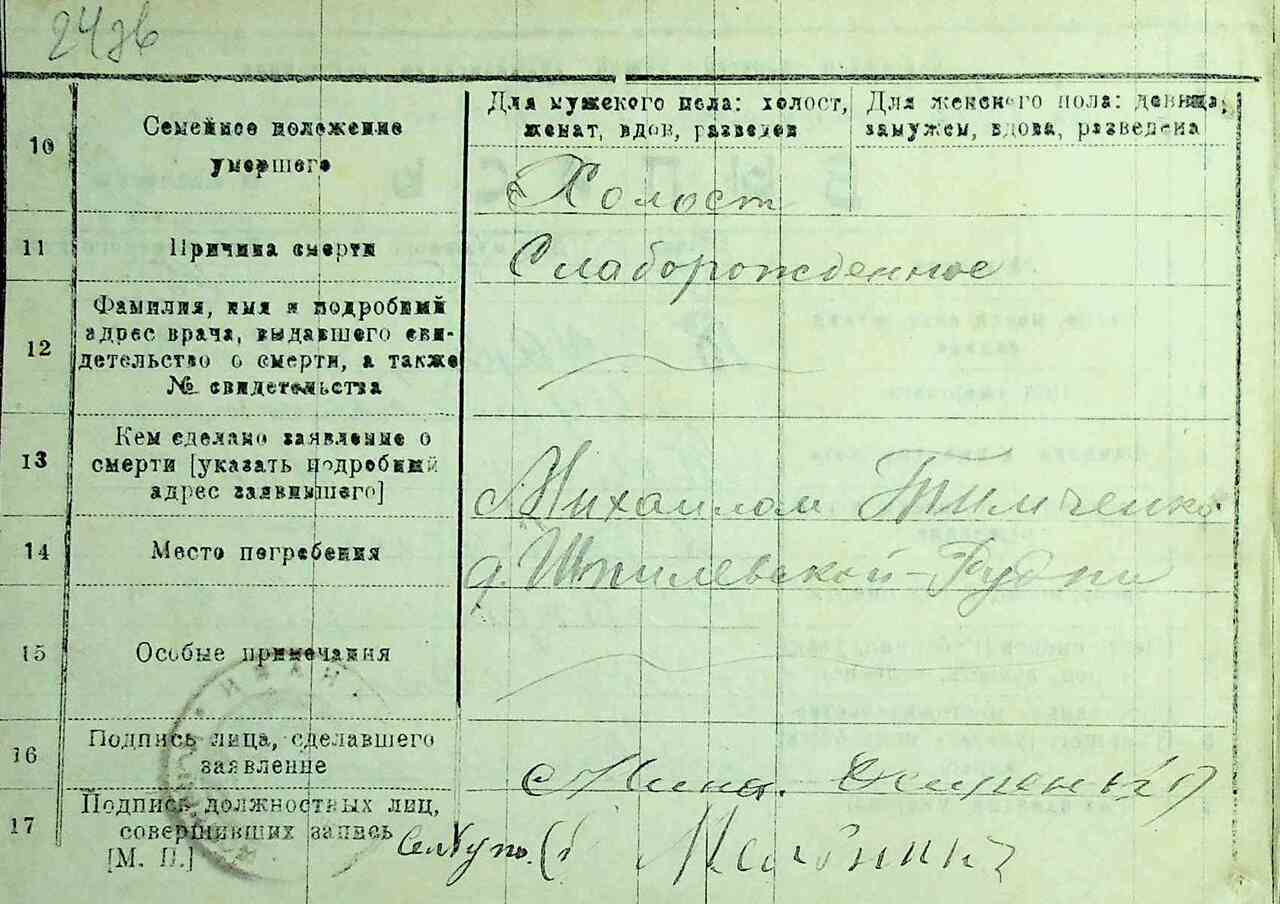 10
Семейное положение
умершего
Для мужского пола: холост,
женат, вдов, разведен
Для женского пола: девица,
замужем, вдова, разведена
Холост
11
Причина смерти
Слаборожденное
12
Фамилия, имя и подробный
адрес врача, выдавшего сви-
детельство о смерти, а также
№ свидетельства
13
Кем сделано заявление о
смерти [указать подробный
адрес заявившего]
Михаилом Тимченко
14
Место погребения
д. Шпилевской-Рудни
15
Особые примечания
16
Подпись лица, сделавшего
заявление
17
Подпись должностных лиц,
совершивших запись
[М. П.]